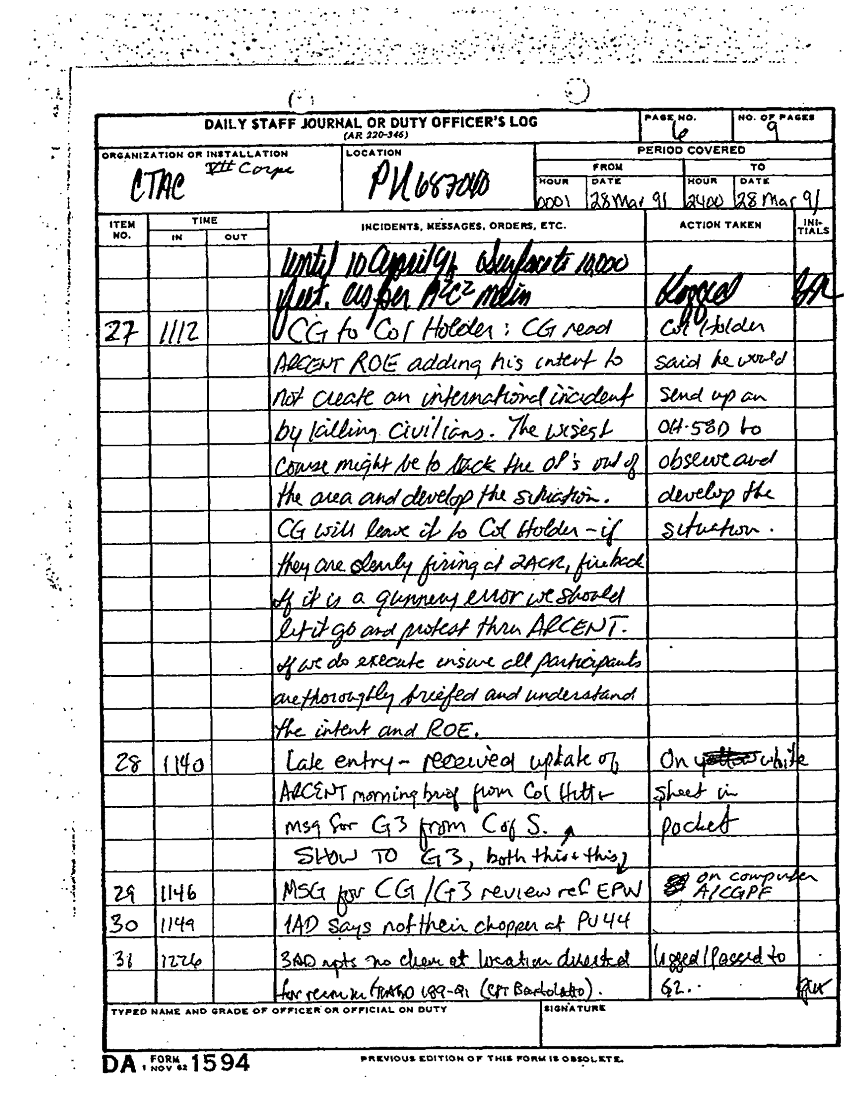 DAILY STAFF JOURNAL OR DUTY OFFICER'S LOG
(AR 220-346)
PAGE NO.
6
NO. OF PAGES
9
ORGANIZATION OR INSTALLATION
CTAC VII Corps
LOCATION
PU687040
PERIOD COVERED
FROM
TO
HOUR
0001
DATE
28 Mar 91
HOUR
2400
DATE
28 Mar 91
ITEM NO.
TIME
IN
OUT
INCIDENTS, MESSAGES, ORDERS, ETC.
ACTION TAKEN
INI-TIALS
until 10 April 91, surface to 10,000
feet. as per A²C² main
logged
27 1112 CG to Col Holder: CG read Col Holder
ARCENT ROE adding his intent to said he would
not create an international incident send up an
by killing civilians. The wisest OH-58D to
course might be to back the OP's out of observe and
the area and develop the situation. develop the
CG will leave it to Col Holder - if situation.
they are clearly firing at 2ACR, fire back
If it is a gunnery error we should
let it go and protest thru ARCENT.
If we do execute insure all participants
are thoroughly briefed and understand
the intent and ROE.
28 1140 Late entry - received update of On white
ARCENT morning brief from Col sheet in
msg for G3 from C of S. pocket
SHOW TO G3, both this & this
29 1146 MSG for CG/G3 review ref EPW on computer
A/CGPF
30 1149 1AD says not their chopper at PU44
31 1226 3AD rpts no chem at location directed logged/Passed to
for recon in 189-91 (CPT ). G2.
TYPED NAME AND GRADE OF OFFICER OR OFFICIAL ON DUTY
SIGNATURE
DA FORM 1 NOV 62 1594
PREVIOUS EDITION OF THIS FORM IS OBSOLETE.